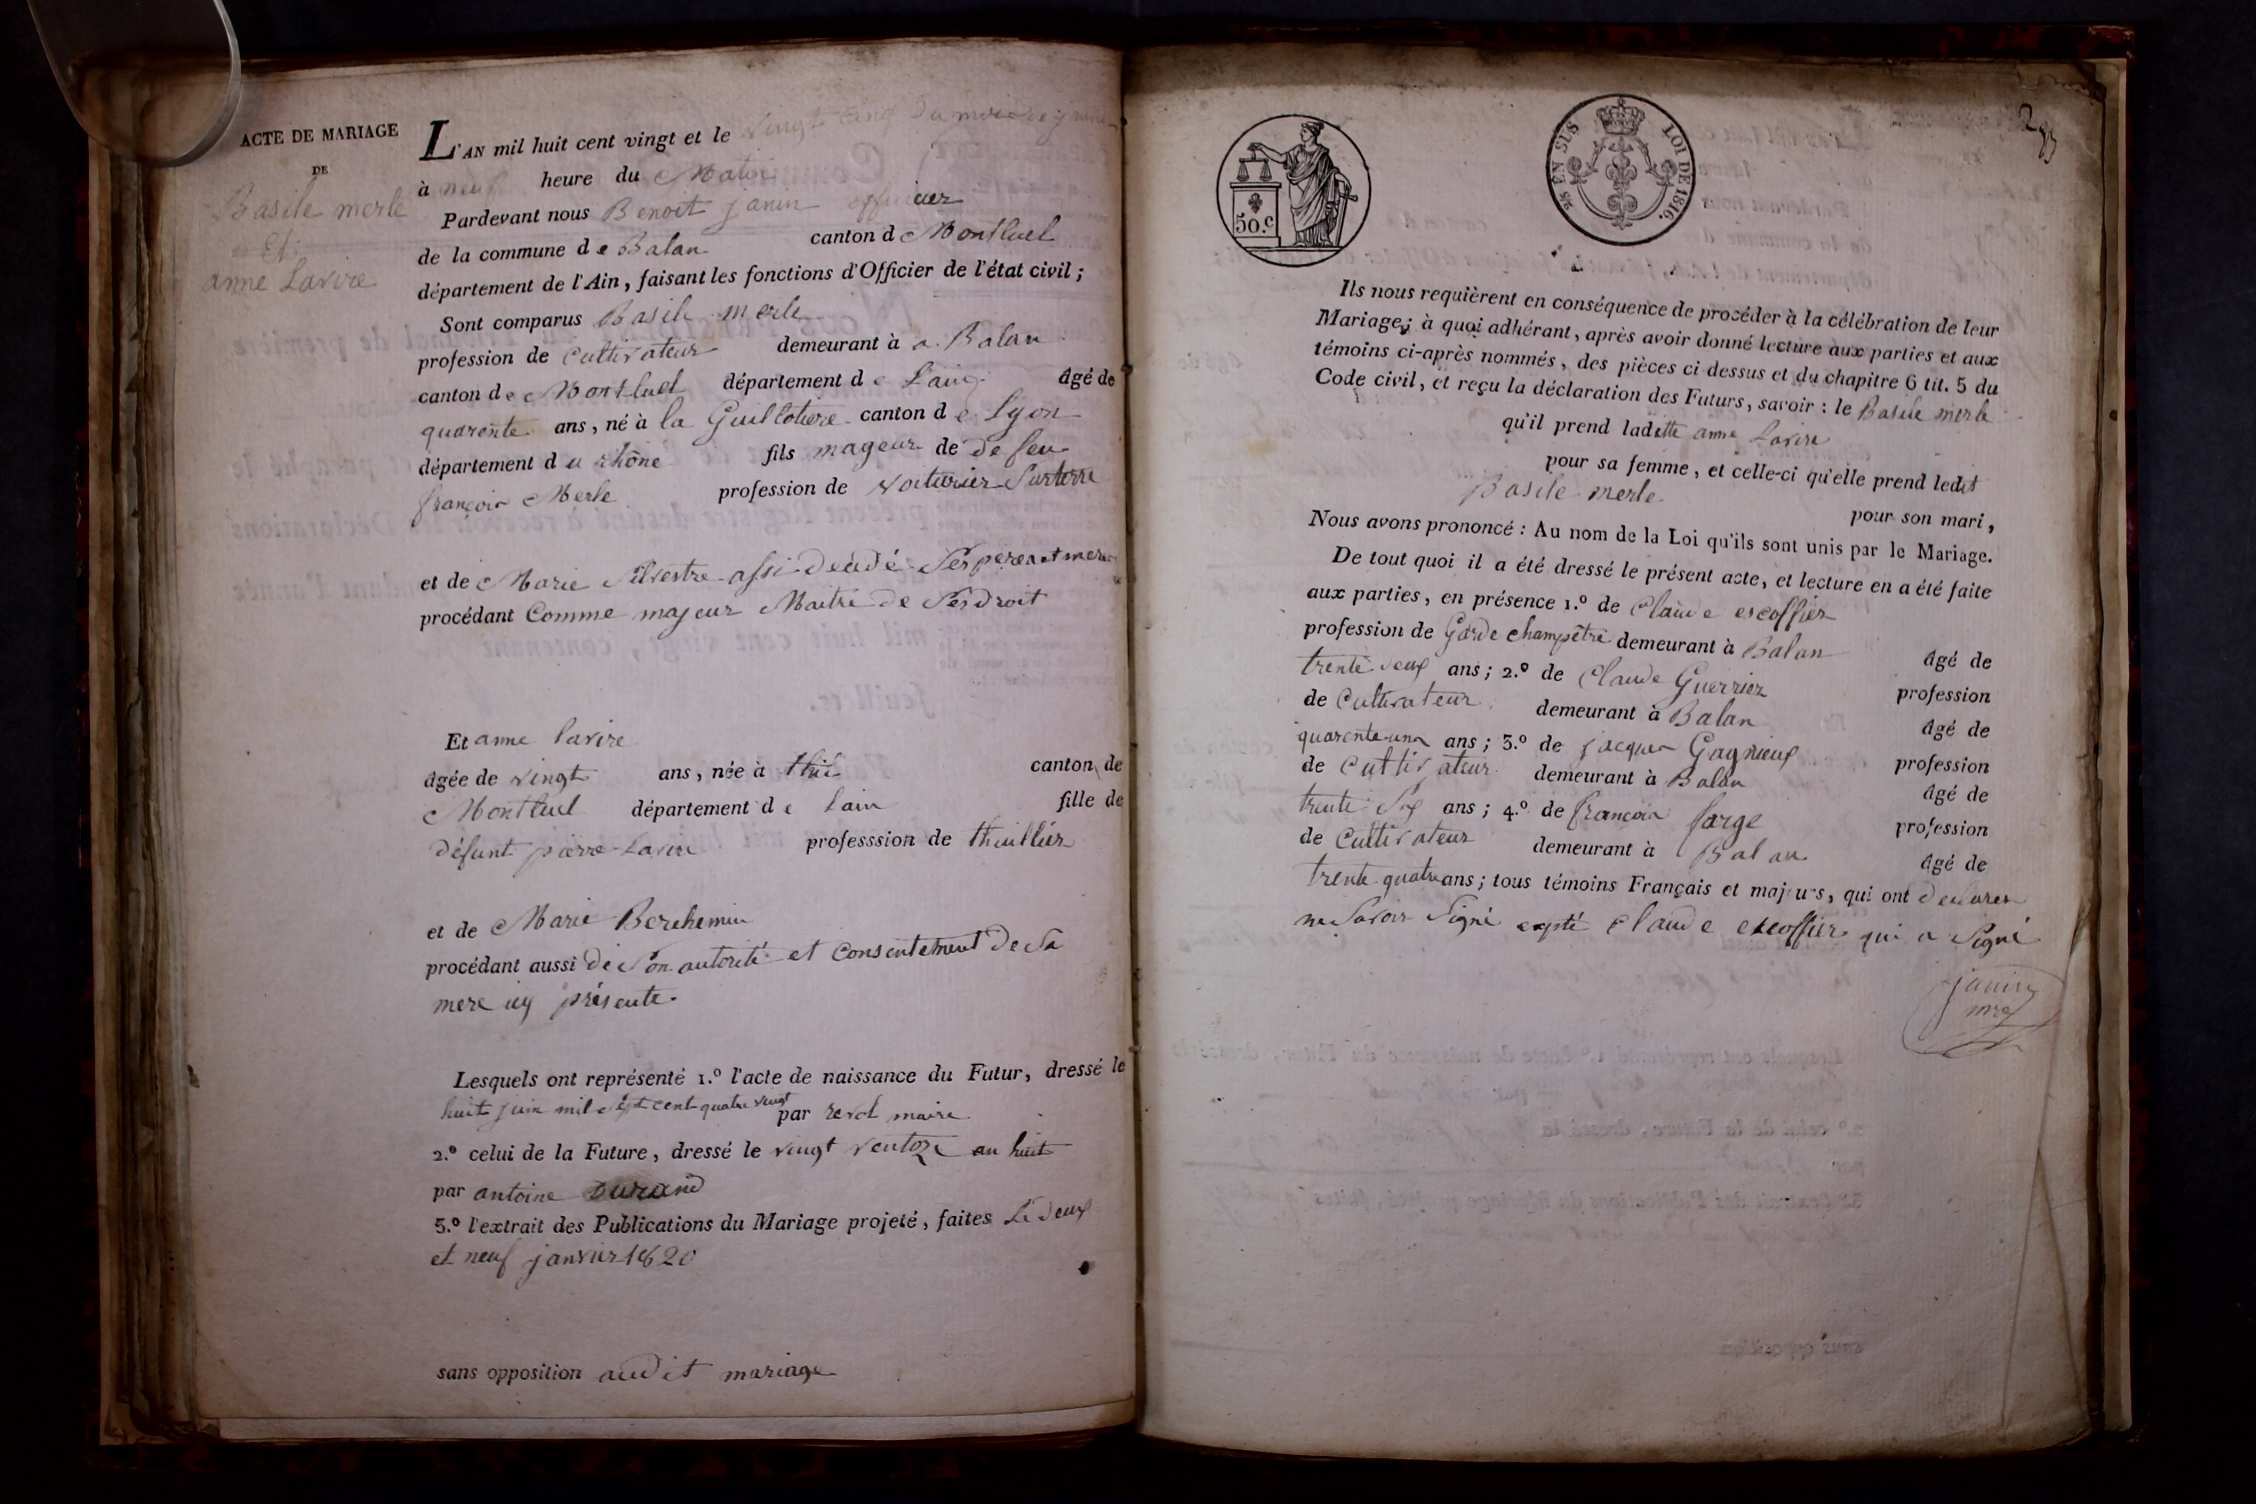 ACTE DE MARIAGE
DE
Basile merle
Et
anne Lavire
L'AN mil huit cent vingt et le vingt cinq du mois de
à neuf heure du Matin
Pardevant nous Benoit janin officier
de la commune de Balan canton d Montluel
département de l'Ain, faisant les fonctions d'Officier de l'état civil ;
Sont comparus Basile merle
profession de Cultivateur demeurant à a Balan
canton de Montluel département de Lain âgé de
quarente ans, né à la Guillotiere canton de Lyon
département du rhône fils mageur de De feu
françois Merle profession de voiturier Surterre
et de Marie Silvestre assi décédé Ses peres et mere
procédant Comme majeur Maitre de Ses droit
Et anne lavire
âgée de vingt ans, née à thil canton de
Montluel département de Lain fille de
défunt pierre Lavire professsion de thuillier
et de Marie Berchemin
procédant aussi de Son autorité et Consentement De Sa
mere icy présente.
Lesquels ont représenté 1.° l'acte de naissance du Futur, dressé le
huit juin mil Sept cent quatre vingt par revol maire
2.° celui de la Future, dressé le vingt ventoze an huit
par antoine Durand
3.° l'extrait des Publications du Mariage projeté, faites Le deux
et neuf janvier 1820
sans opposition audit mariage
50.c
25 EN SUS
LOI DE 1816.
Ils nous requièrent en conséquence de procéder à la célébration de leur
Mariage; à quoi adhérant, après avoir donné lecture aux parties et aux
témoins ci-après nommés, des pièces ci dessus et du chapitre 6 tit. 5 du
Code civil, et reçu la déclaration des Futurs, savoir : le Basile merle
qu'il prend ladette anne Lavire
pour sa femme, et celle-ci qu'elle prend ledit
Basile merle pour son mari,
Nous avons prononcé : Au nom de la Loi qu'ils sont unis par le Mariage.
De tout quoi il a été dressé le présent acte, et lecture en a été faite
aux parties, en présence 1.° de Claude escoffier
profession de Garde champêtre demeurant à Balan âgé de
trente deux ans ; 2.° de Claude Guerrier profession
de Cultivateur demeurant à Balan âgé de
quarente un ans ; 3.° de jacques Gagnieux profession
de Cultivateur demeurant à Balan âgé de
trente Six ans ; 4.° de françois farge profession
de Cultivateur demeurant à Balan âgé de
trente quatre ans ; tous témoins Français et majeurs, qui ont déclarer
ne Savoir Signé expté Claude escoffier qui a Signé
janin
mre